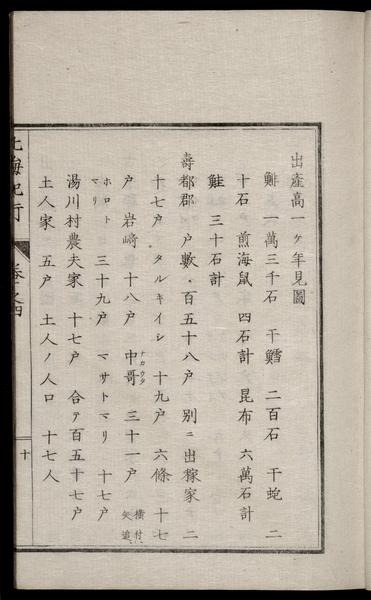 出産高一ヶ年見圖
鯡 一萬三千石 干鱈 二百石 干鮑 二
十石 煎海鼠 四石計 昆布 六萬石計
鮭 三十石計
壽都郡 戸數 百五十八戸 別ニ出稼家 二
十七戸 タルキイシ 十九戸 六條 十七
戸 岩﨑 十八戸 中哥 三十一戸 横付、矢追、
ナカウタ
ホロトマリ 三十九戸 マサトマリ 十七戸
湯川村農夫家 十七戸 合テ百五十七戸
土人家 五戸 土人ノ人口 十七人
北海紀行 卷之四
十